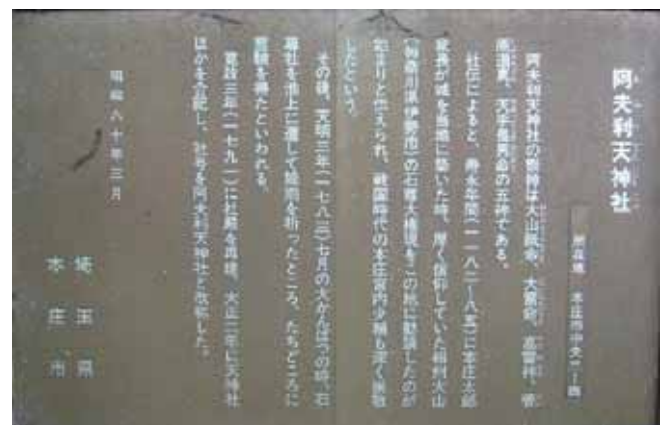 阿夫利天神社
所在地 本庄市中央
阿夫利天神社の祭神は大山祇命、大雷命、高龗神、菅
原道真、
の五神である。
社伝によると、寿永年間(一一八二~八五)に本庄太郎
家長が城を当地に築いた時、厚く信仰していた相州大山
(神奈川県伊勢原市)の石尊大権現をこの地に勧請したのが
始まりと伝えられ、戦国時代の本庄宮内少輔も深く崇敬
したという。
その後、天明三年(一七八三)七月の大かんばつの時、石
尊社を池上に遷して雨を祈ったところ、たちどころに
霊験を得たといわれる。
寛政三年(一七九一)に社殿を再建、大正二年に天神社
ほかを合祀し、社号を阿夫利天神社と改称した。
昭和六十年三月
埼玉県
本庄市